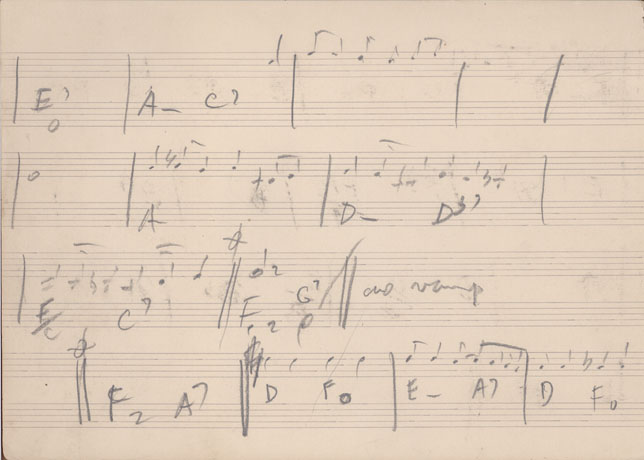 E7 A– C7
o
A D– D♭7
E/C C7 F G7 ao vamp
F2 A7 D Fo E– A7 D Fo